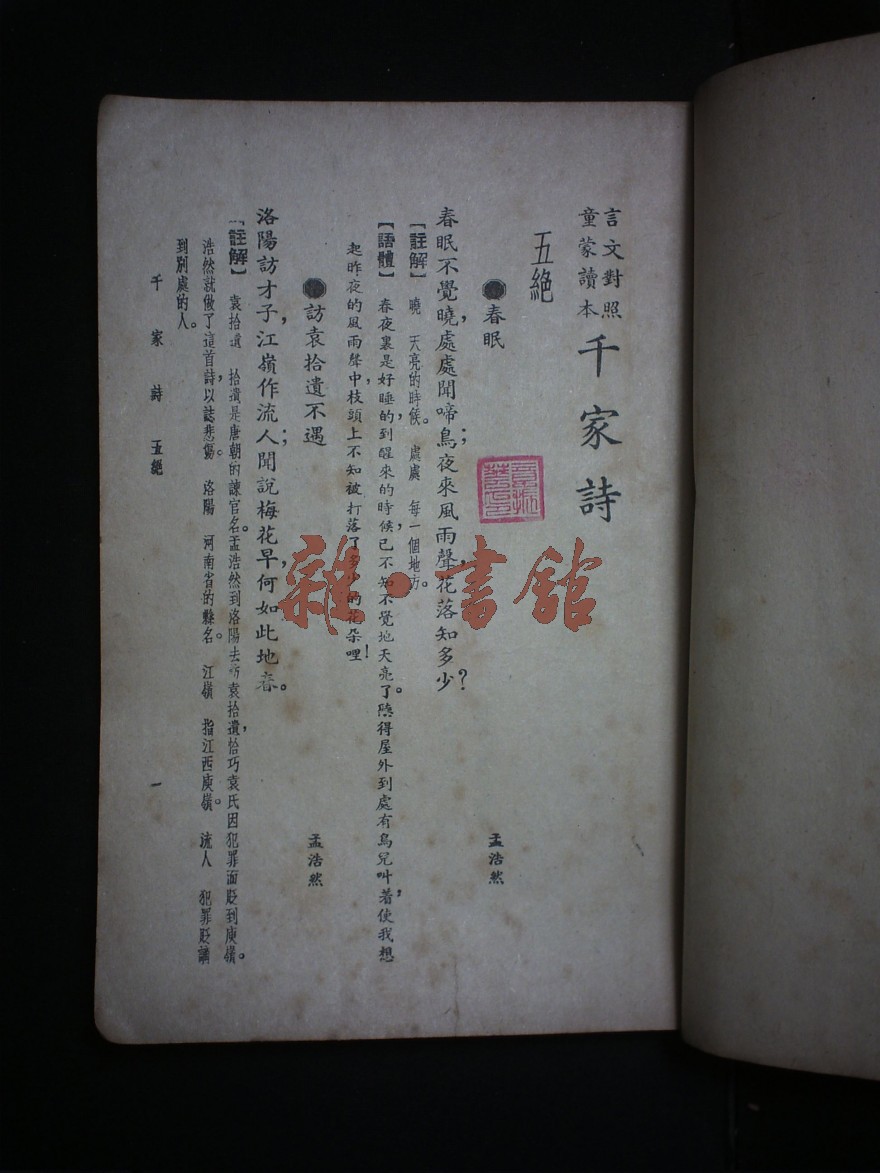 言文對照
童蒙讀本
千家詩
五絕
春眠
孟浩然
春眠不覺曉，處處聞啼鳥；夜來風雨聲，花落知多少？
【註解】 曉 天亮的時候。 處處 每一個地方。
【語體】 春夜裏是好睡的，到醒來的時候，已不知不覺地天亮了。聽得屋外到處有鳥兒叫着，使我想
起昨夜的風雨聲中，枝頭上不知被打落了多少的花朶哩！
訪袁拾遺不遇
孟浩然
洛陽訪才子，江嶺作流人；聞說梅花早，何如此地春。
【註解】 袁拾遺 拾遺是唐朝的諫官名。孟浩然到洛陽去訪袁拾遺，恰巧袁氏因犯罪而貶到庾嶺。
浩然就做了這首詩，以誌悲傷。 洛陽 河南省的縣名。 江嶺 指江西庾嶺。 流人 犯罪貶謫
到別處的人。
千家詩 五絕
一
雜·書館